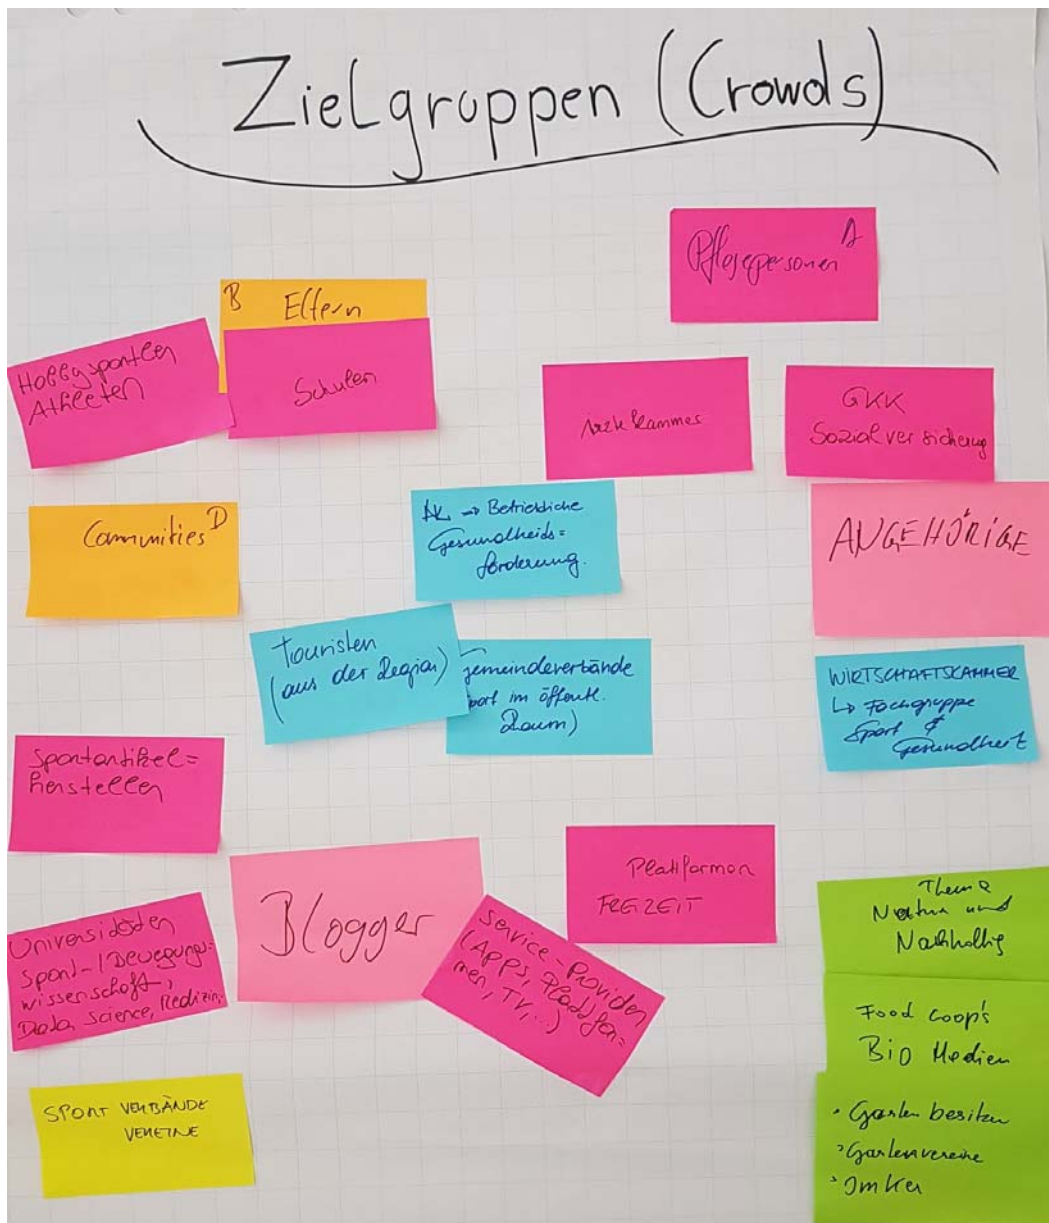 Zielgruppen (Crowds)
Pflegepersonen A
B Eltern
Schulen
Hobbysportler
Athleten
Ärztekammer
GKK
Sozialversicherung
Communities D
AK → Betriebliche
Gesundheits=
förderung.
ANGEHÖRIGE
Touristen
(aus der Region)
Gemeindeverbände
port im öffentl.
Raum)
WIRTSCHAFTSKAMMER
↳ Fachgruppe
Sport &
Gesundheit
Sportartikel=
hersteller
Blogger
Plattformen
FREIZEIT
Universitäten
Sport-/Bewegungs=
wissenschaft,
Data Science, Medizin,
Service-Provider
(Apps, Plattfor=
men, TV,...)
Thema
Natur und
Nachhaltig
Food Coop's
Bio Medien
SPORT VERBÄNDE
VEREINE
• Gartenbesitzer
• Gartenvereine
• Imker